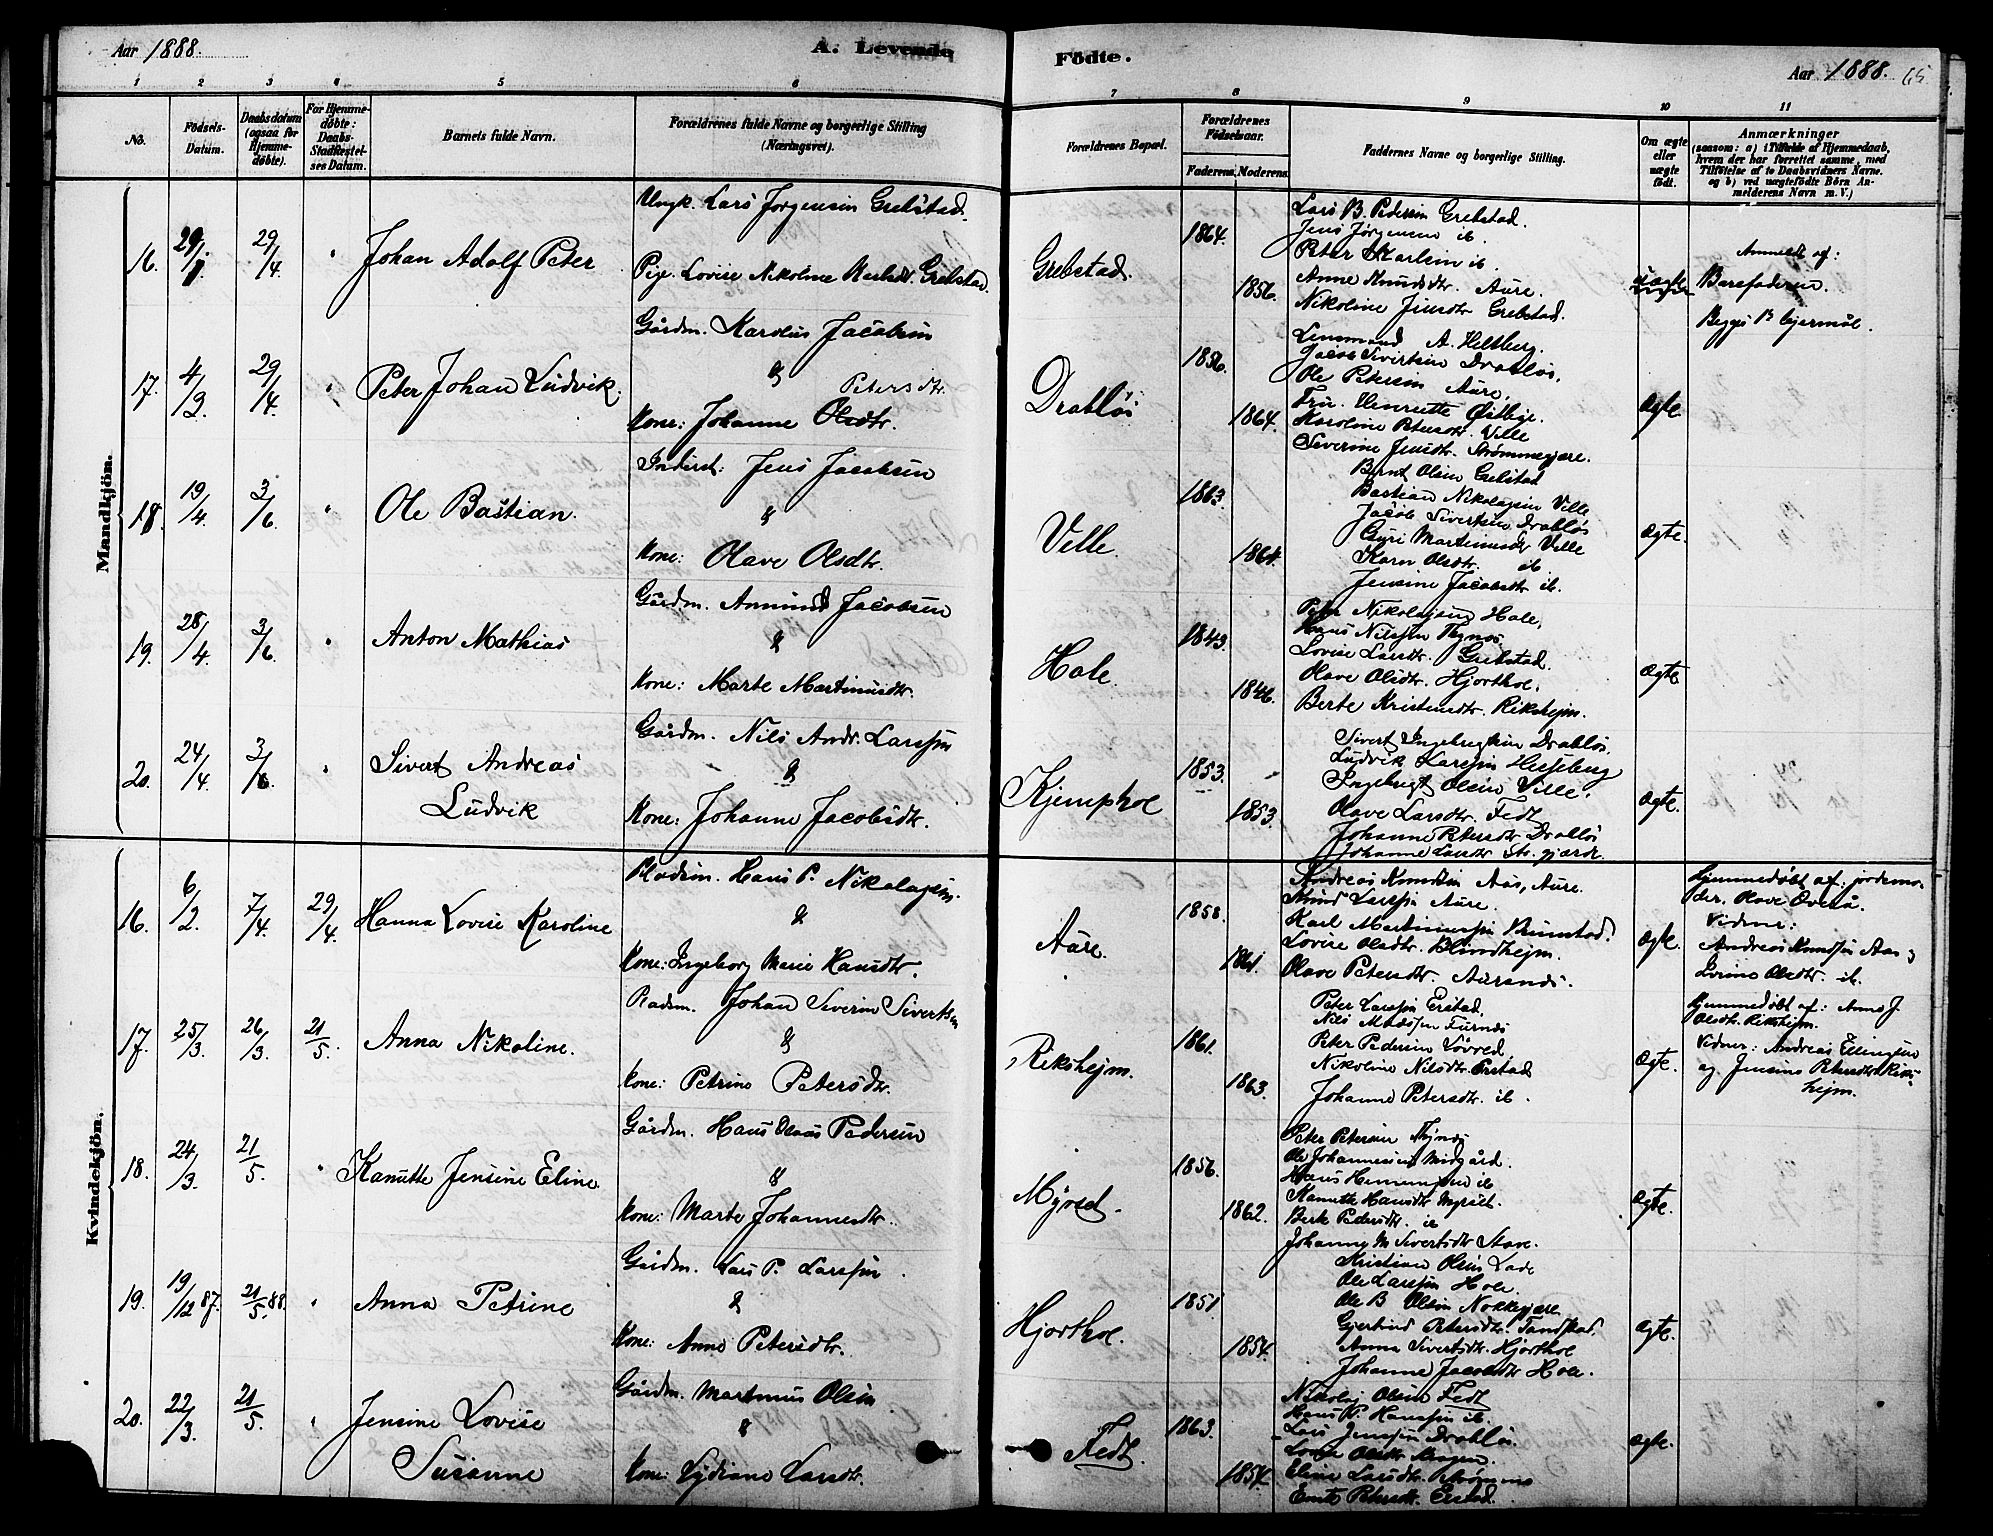 Aar 1888.
A. Levende
Födte.
Aar 1888. 65.
1 2 3 4 5 6 7 8 9 10 11
No.
Födsels-Datum.
Daabsdatum (ogsaa for Hjemmedöbte).
For Hjemmedöbte: Daabs-Stadfæstelses Datum.
Barnets fulde Navn.
Forældrenes fulde Navne og borgerlige Stilling (Næringsvei).
Forældrenes Bopæl.
Forældrenes Födselsaar.
Faderens. Moderens.
Faddernes Navne og borgerlige Stilling.
Om ægte eller uægte födt.
Anmærkninger
(saasom: a) i Tilfælde af Hjemmedaab, hvem der har forrettet samme, med Tilföielse af to Daabsvidners Navne. og b) ved uægtefödte Börn Anmelderens Navn m. V.)
Mandkjön.
16. 29/1 29/4 " Johan Adolf Peter
Ungk. Lars Jørgensen Grebstad.
Pige Lovise Nikoline Grebstad.
Grebstad. 1864. 1856.
Lars B. Pedersen Grebstad.
Jens Jørgensen ib.
Peter Karlsen ib.
Anne Knudsdtr. Aure.
Nikoline Jensdtr. Grebstad.
uægte
Anmeldt af:
Barnefaderen.
Begges 1ste lejermål.
17. 4/3 29/4 " Peter Johan Ludvik.
Gårdm. Karolus Jacobsen
&
Petersdtr.
Kone: Johanne Olsdtr.
Drabløs 1856. 1864.
Lensmand A. Heltberg.
Jacob Sivertsen Drabløs.
Ole Petersen Aure.
Fru Henriette
Karoline Petersdtr. Ville
Severine Jensdtr. Strømmegjære.
Ægte.
18. 19/4 3/6 " Ole Bastian.
Inderst: Jens Jacobsen
&
Kone: Olave Olsdtr.
Ville 1863. 1864.
Bernt Olsen Grebstad
Bastian Nikolajsen Ville
Jacob Sivertsen Drabløs
Guri Martinusdtr Ville
Karn Olsdtr. ib
Jensine Jacobsdtr ib.
Ægte.
19. 28/4 3/6 " Anton Mathias
Gårdm. Amund Jacobsen
&
Kone: Marte Martinusdtr.
Hole. 1843. 1846.
Peter Nikolajsen Hole,
Hans Nilssen Thynæs
Lovise Larsdtr. Grebstad.
Olave Olsdtr. Hjorthol.
Berte Kristensdtr. Riksheim.
Ægte.
20. 24/4 3/6 " Sivert Andreas
Ludvik
Gårdm. Nils Andr. Larssen
&
Kone: Johanne Jacobsdtr.
Kjemphol 1853. 1853.
Sivert Ingebrigtsen Drabløs.
Ludvik Larssen Hesseberg
Ingebrigt Olsen Ville.
Olave Larsdtr. Fedt
Johanne Petersdtr Drabløs
Johanne Larsdtr. Str. gjærde.
Ægte.
Kvindekjön.
16. 6/2 7/4 29/4 Hanna Lovise Karoline
Pladsm. Hans P. Nikolajsen.
&
Kone: Ingeborg Marie Hansdtr.
Aure. 1858. 1861.
Andreas Knudsen Aas, Aure.
Knud Larssen Aure.
Karl Martinussen Brunstad.
Lovise Olsdtr. Blindhejm.
Olave Petersdtr. Auranæs.
Ægte.
Hjemmedøbt af: jordemo-
der. Olave Overaa.
Vidner:
Andreas Knudsen Aas &
Lovise Olsdtr. ib.
17. 25/3 26/3 21/5. Anna Nikoline.
Pladsm. Johan Severin Sivertsen
&
Kone: Petrine Petersdtr.
Rikshejm. 1861. 1863.
Peter Larssen Erstad.
Nils Madssen Furnæs
Peter Pedersen Løvved
Nikoline Nilsdtr. Erstad
Johanne Petersdtr. ib.
Ægte.
Hjemmedøbt af: Anne J.
Olsdtr. Rikshejm.
Vidner: Andreas Ellingsen
og Jensine Petersdtr. Riks-
hejm.
18. 24/3 21/5 " Kanutte Jensine Eline
Gårdm. Hans Olaus Pedersen
&
Kone: Marte Johannesdtr.
Myrset. 1856. 1862.
Peter Petersen Thynæs
Ole Johannessen Midgård.
Hans Henningsen ib
Kanutte Hansdtr. Myrset.
Berte Pedersdtr. ib
Johanne M Sivertsdtr Stave.
Ægte.
19. 19/12 87. 21/5 88. " Anna Petrine
Gårdm. Lars P. Larssen.
&
Kone: Anne Petersdtr.
Hjorthol. 1851 1854.
Kristian Olsen Lade
Ole Larssen Hole.
Ole B Olsen Nakkegjære
Gjertrud Petersdtr. Tandstad.
Anna Sivertsdtr. Hjorthol
Johanne Jacobsdtr Hole.
Ægte.
20. 22/3 21/5 " Jensine Lovise
Susanne
Gårdm. Martinus Olsen
&
Kone: Lydiane Larsdtr.
Fedt. 1863. 1857.
Nikolaj Olsen Fedt
Hans N. Hanssen ib.
Lars Jenssen Drabløs.
Lovise Olsdtr.
Eline Larsdtr. Strømme
Petersdtr. Erstad.
Ægte.